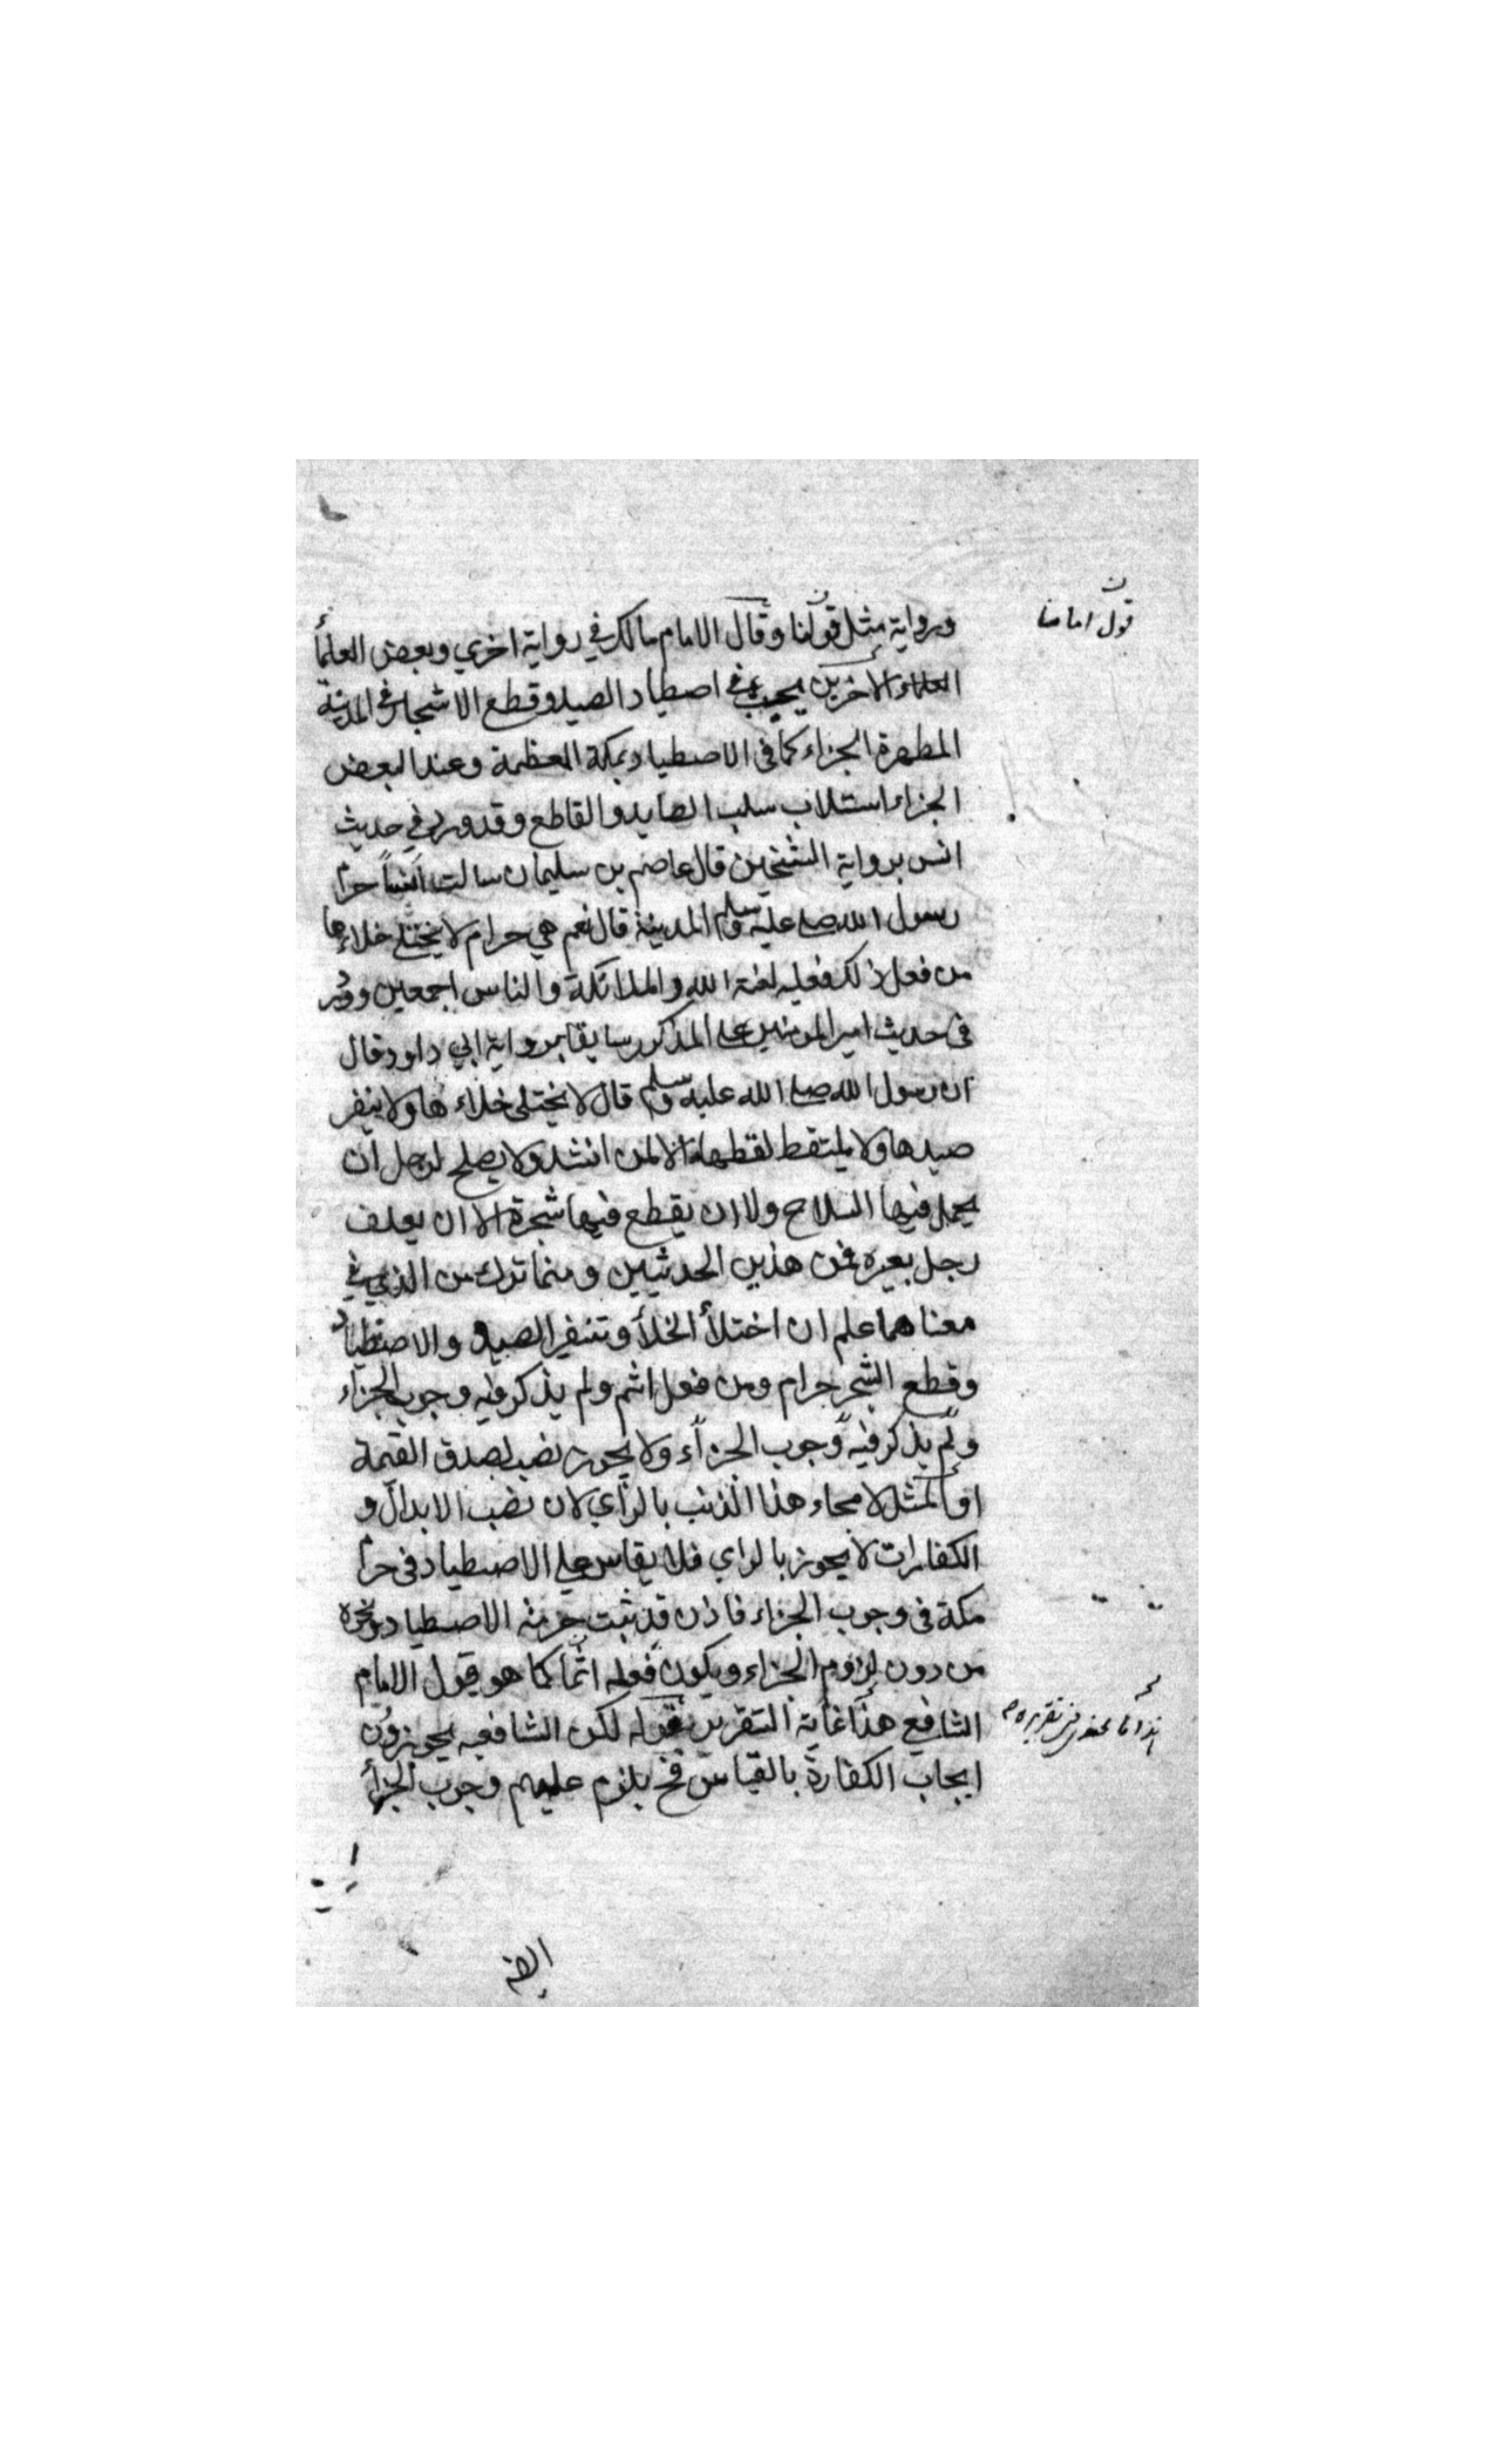 قول امامنا
ورواية مثل قولنا وقال الامام مالك في رواية اخري وبعض العلمأ
العلماء الاخرين يجب في اصطياد الصيد وقطع الاشجار في المدينة
المطهرة الجزاء كما في الاصطياد بمكة المعظمة وعند البعض
الجزاء استلاب سلب الصايد والقاطع وقد ورد في حديث
انس برواية الشيخين قال عاصم بن سليمان سالت انساً حرا
رسول الله صلے عليه وسلم المدينة قال نعم هي حرام لا يختلے خلاءها
من فعل ذلك فعليه لعنة الله والملائكة والناس اجمعين وورد
في حديث امير المومنين علے المذكور سابقا برواية ابي داود قال
ان رسول الله صلے الله عليه وسلم قال لا يختلى خلاءها ولا ينفر
صيدها ولا يلتقط لقطها الا لمن انشد ولا يصلح لرجل ان
يحمل فيها السلاح ولا ان يقطع فيها شجرة الا ان يعلف
رجل بعيره فمن هذين الحديثين ومما ترك من الذي في
معناهما علم ان اختلأ الخلأ وتنفير الصيد والاصطياد
وقطع الشجر حرام ومن فعل اثم ولم يذكر فيه وجوب الجزاء
ولم يذكر فيه وجوب الجزآء ولا يجوز نصب تصدق القيمة
او المثل لامحاء هذا الذنب بالرأي لان نصب الابدال و
الكفارات لا يجوز بالراي فلا يقاس علے الاصطياد في حرا
مكة في وجوب الجزاء فاذن قد ثبت حرمة الاصطياد ونحوه
من دون لزوم الجزاء ويكون فعله اثما كما هو قول الامام
الشافع هذا غاية التقرير لقوله لكن الشافعيه يجوزون
ايجاب الكفارة بالقياس فح يلزم عليهم وجوب الجزأ